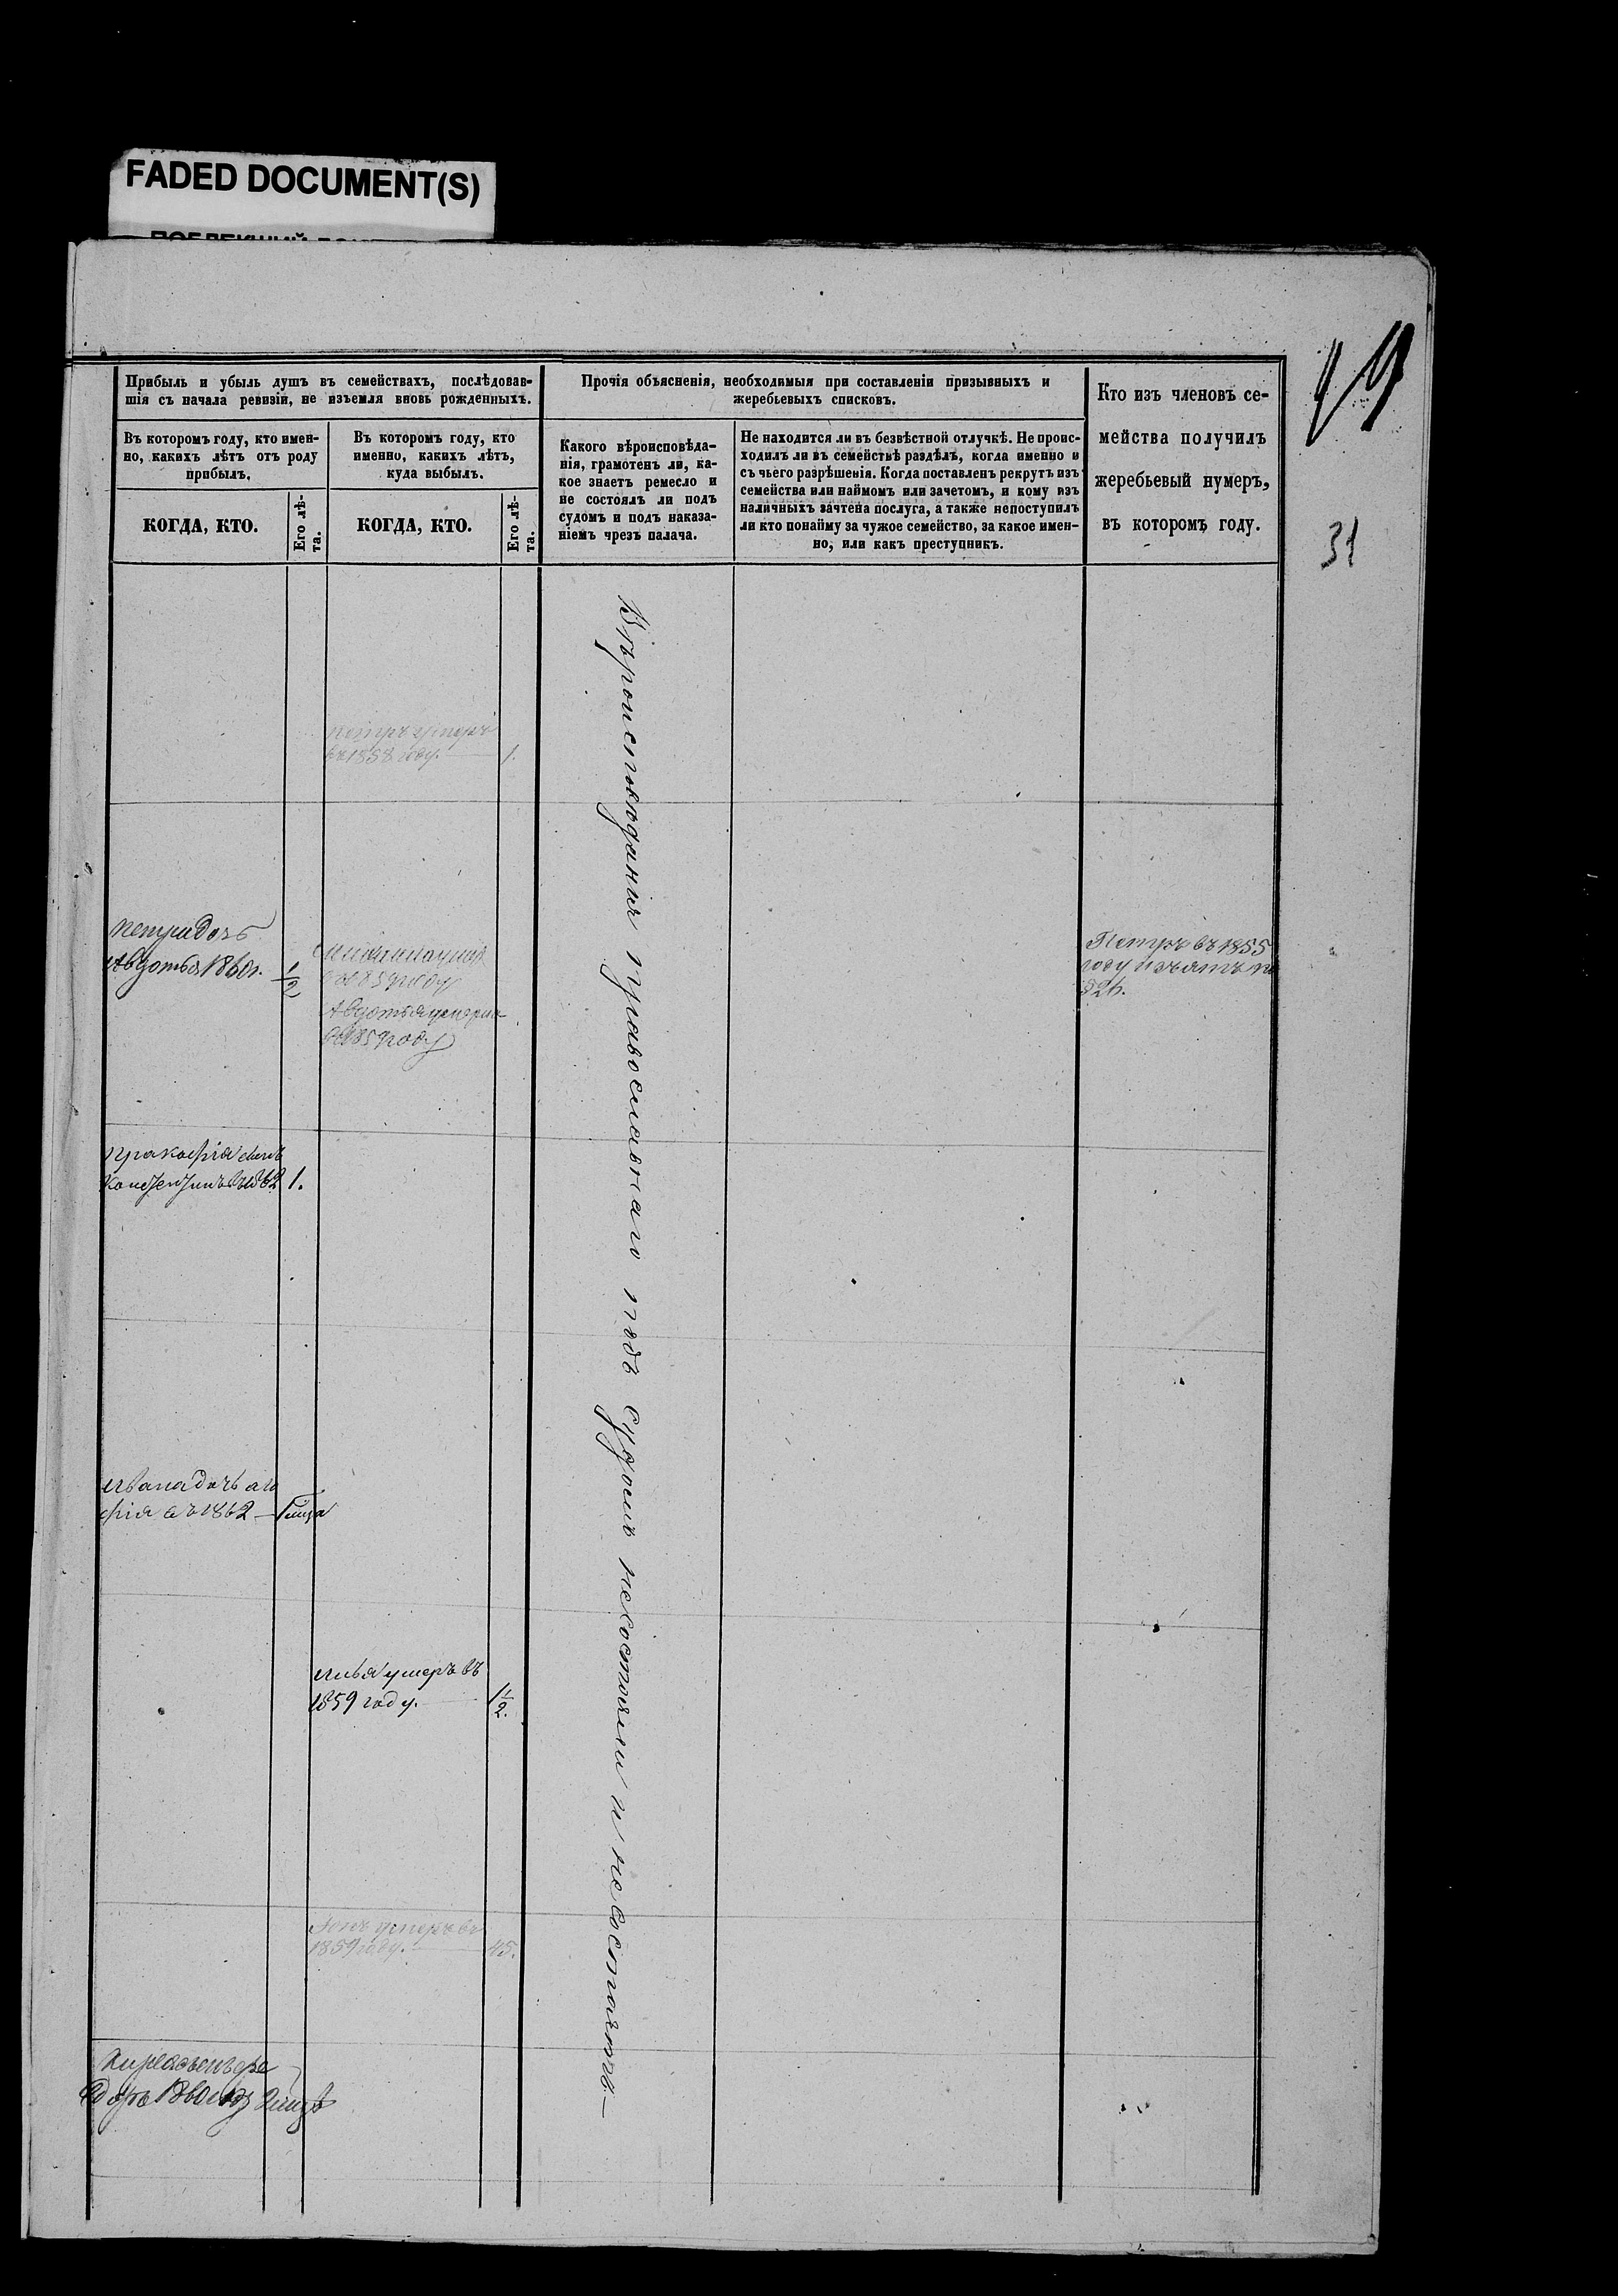 FADED DOCUMENT(S)
19
31
Прибыль и убыль душъ въ семействахъ, послѣдовав-
шія съ начала ревизіи, не изъемля вновь рожденныхъ.
Прочія объясненія, необходимыя при составленіи призывныхъ и
жеребьевыхъ списковъ.
Кто изъ членовъ се-
мейства получилъ
жеребьевый нумеръ,
въ которомъ году.
Въ которомъ году, кто имен-
но, какихъ лѣтъ отъ роду
прибылъ.
Въ которомъ году, кто
именно, какихъ лѣтъ,
куда выбылъ.
Какого вѣроисповѣда-
нія, грамотенъ ли, ка-
кое знаетъ ремесло и
не состоялъ ли подъ
судомъ и подъ наказа-
ніемъ чрезъ палача.
Не находится ли въ безвѣстной отлучкѣ. Не проис-
ходилъ ли въ семействѣ раздѣлъ, когда именно и
съ чьего разрѣшенія. Когда поставленъ рекрутъ изъ
семейства или наймомъ или зачетомъ, и кому изъ
наличныхъ зачтена послуга, а также непоступилъ
ли кто понайму за чужое семейство, за какое имен-
но, или какъ преступникъ.
КОГДА, КТО.
Его лѣ-
та.
КОГДА, КТО.
Его лѣ-
та.
Вѣроисповѣданія православнаго подъ судомъ несостояли и несостоятъ.—
Петръ умеръ
въ 1858 году. — 1.
Петра дочь
Авдотья 1860 г. 1/2
въ 1859 году
Авдотья умерла
въ 1859 году
Петръ въ 1855
году изъятъ
326.
Пракофія сынъ
1862 1.
Ивана дочь
фія въ 1862 —
Илья умеръ въ
1859 году. — 1/2.
умеръ въ
1859 году. — 45.